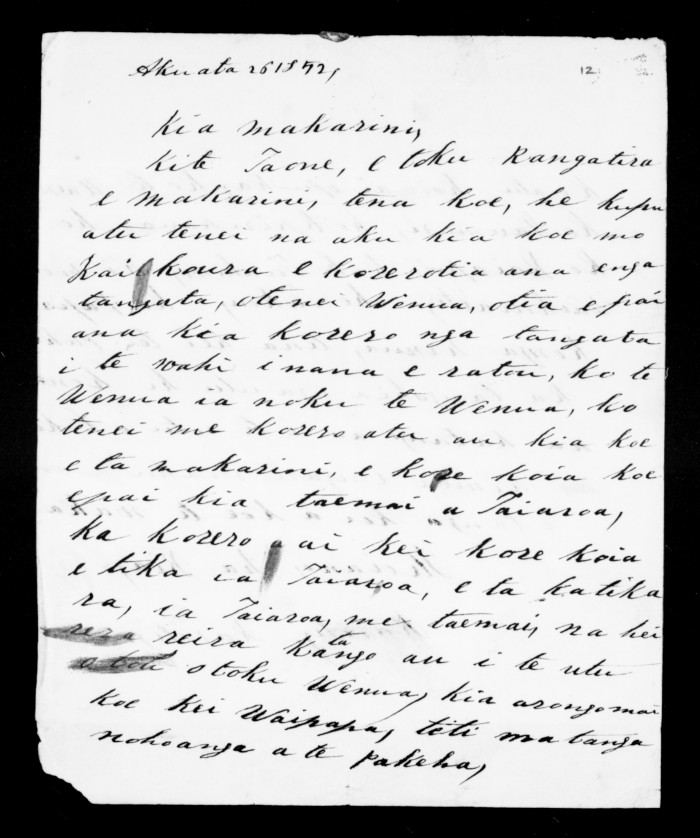 Akuata 26 1852,
12
Kia makarini,
Kite Taone, e toku Rangatira
e makarini, tena koe, he kupu
atu tenei na aku kia koe mo
Kaikoura e korerotia ana enga
tangata, otenei Wenua, otia e pai
ana kia korero nga tangata
i te wahi i nana e ratou, ko te
Wenua ia noku te Wenua, ko
tenei me korero atu au kia koe
e ta makarini, e kore koia koe
epai kia taemai a Taiaroa,
ka korero ai kei kore koia
e tika ia Taiaroa, e ta katika
ra, ia Taiaroa, me taemai, na hei
reira ka tango au i te utu
o toku Wenua, kia arongomai
koe kei Waipapa, teti matanga
nohoanga a te pakeha,